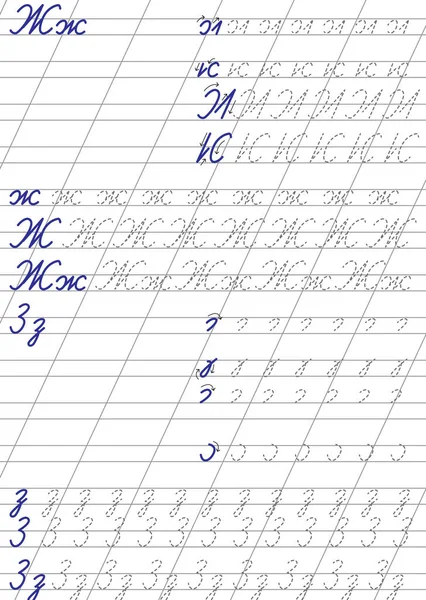 Жж
ж ж ж ж ж ж ж ж ж
Ж Ж Ж Ж Ж Ж Ж Ж
Жж Жж Жж Жж Жж
Зз
з з з з з з з з з з
З З З З З З З З З З
Зз Зз Зз Зз Зз Зз Зз Зз